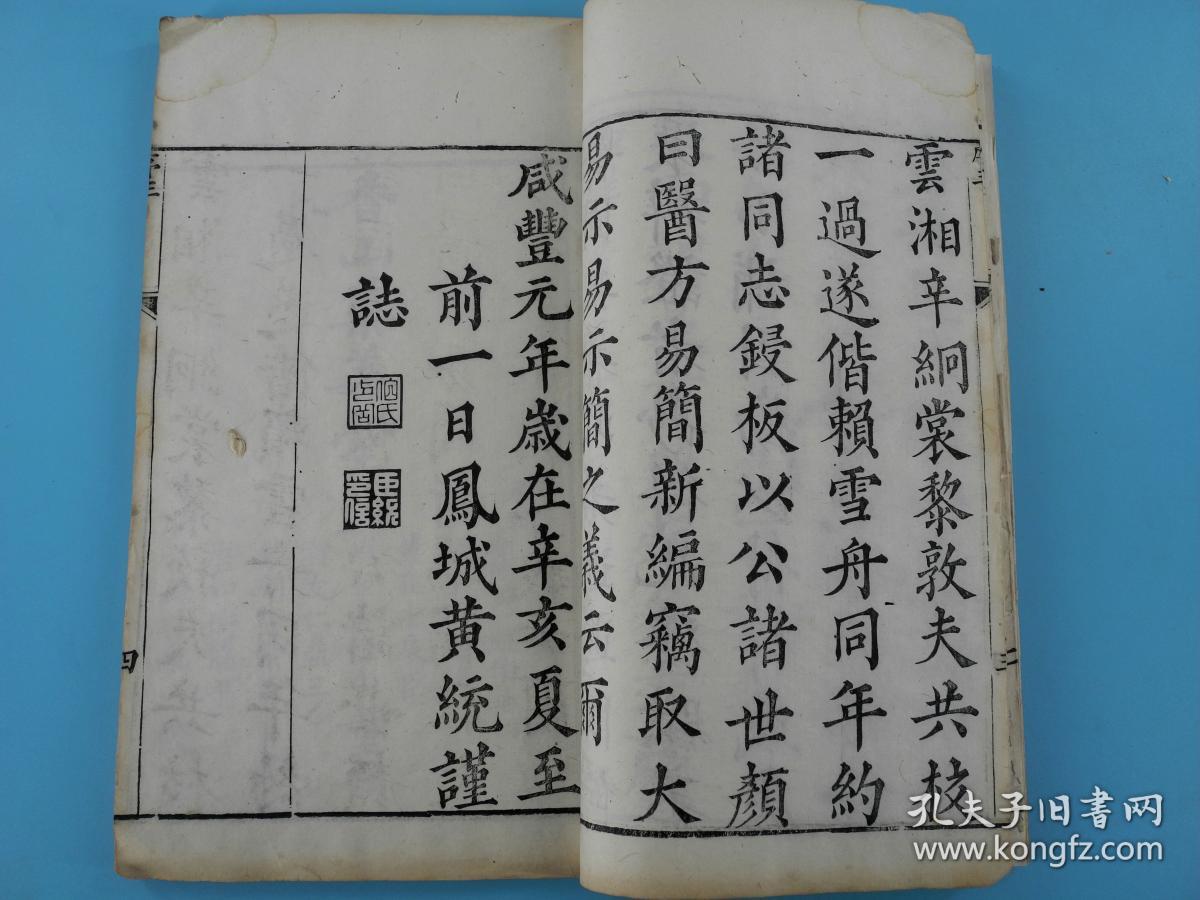 雲湘辛絅裳黎敦夫共校
一過遂偕賴雪舟同年約
諸同志鋟板以公諸世顏
曰醫方易簡新編竊取大
易示易示簡之義云爾
咸豐元年歲在辛亥夏至
前一日鳳城黃統謹
誌
臣統印信
三
四
孔夫子旧书网
www.kongfz.com